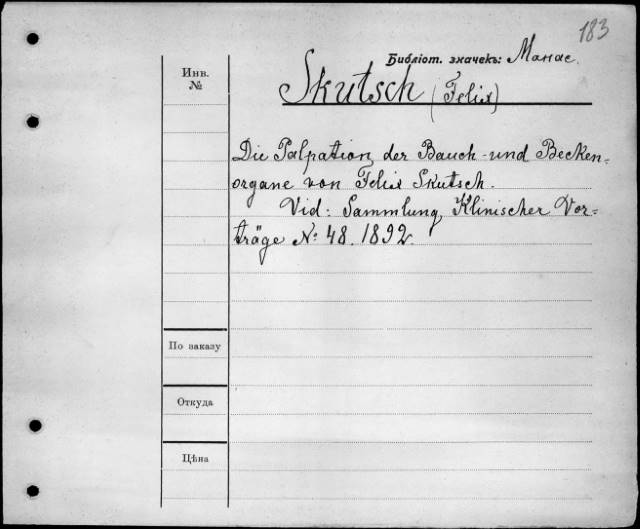 183
Библіот. значекъ: Манас.
Инв.
№
Skutsch (Felix)
Die Palpation der Bauch- und Becken-
organe von Felix Skutsch.
Vid: Sammlung Klinischer Vor-
träge No: 48. 1892.
По заказу
Откуда
Цѣна